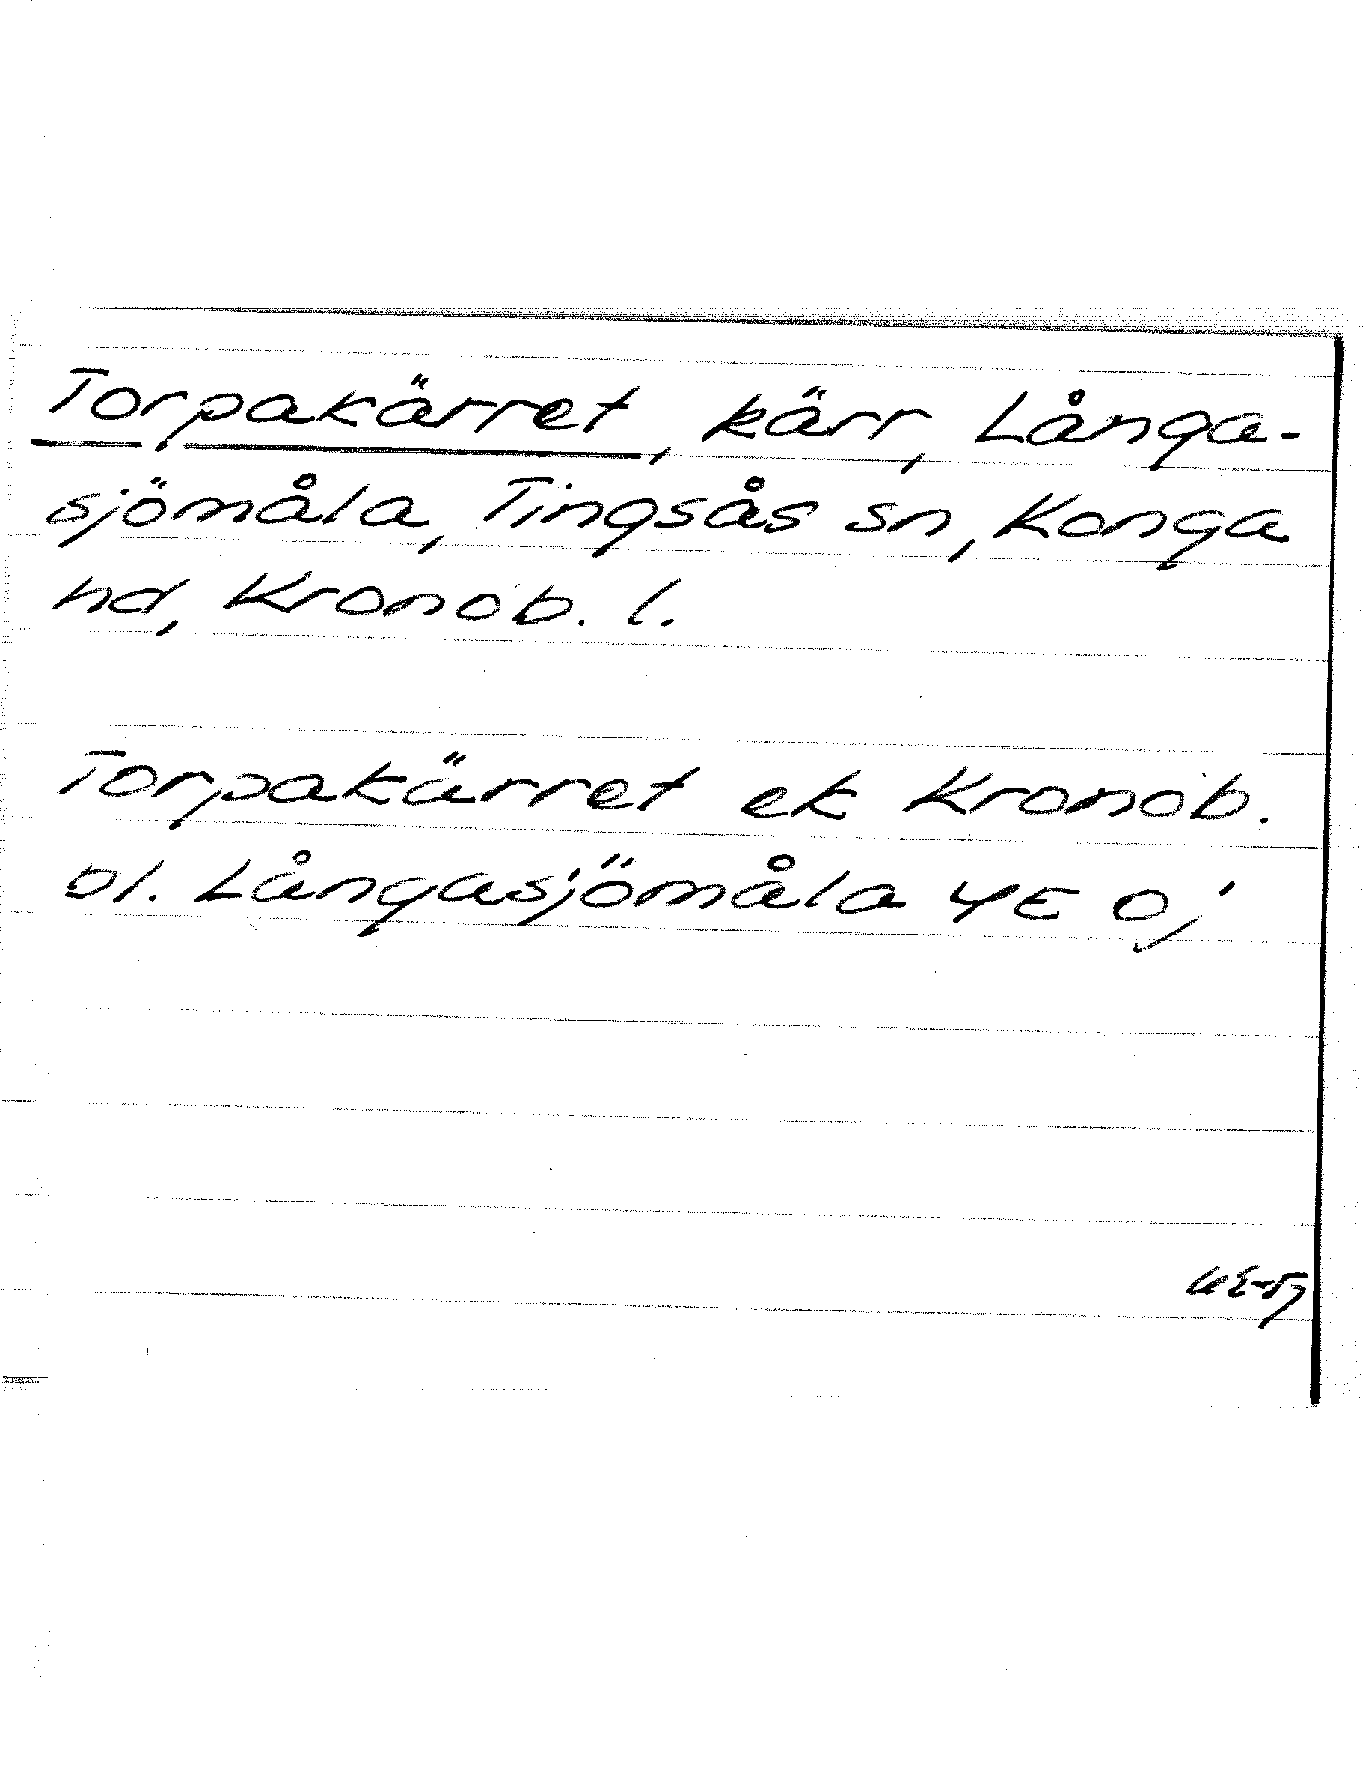 Torpakärret, kärr, Långa-
sjömåla, Tingsås sn, Konga
hd, Kronob. l.
Torpakärret ek Kronob.
bl. Långasjömåla 4E 0j